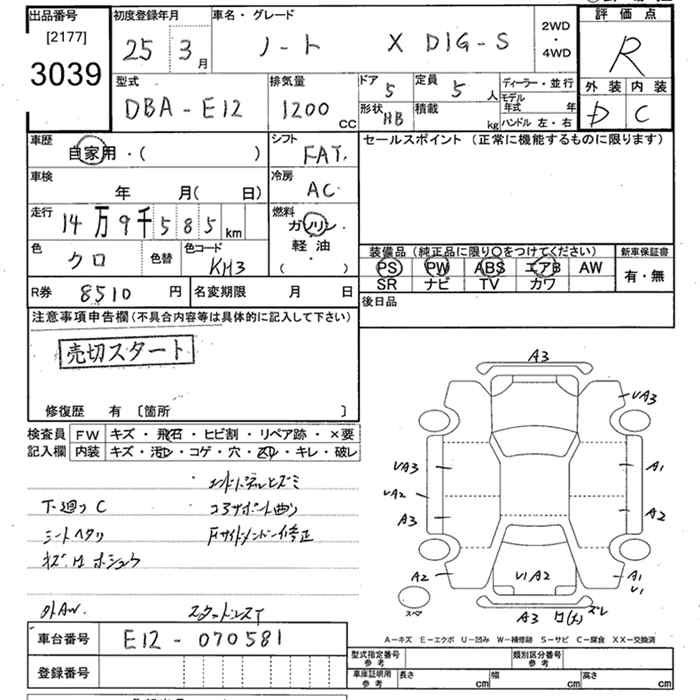 出品番号
[2177]
3039
初度登録年月
25 3月
車名・グレード
ノート X DIG-S
2WD
・
4WD
評価点
R
型式
DBA-E12
排気量
1200 CC
ドア
5
定員
5 人
形状
HB
積載
kg
ディーラー・並行
モデル年式 年
ハンドル 左・右
外装 内装
D C
車歴
自家用・( )
シフト
FAT.
セールスポイント (正常に機能するものに限ります)
車検
年 月( 日)
冷房
AC
走行
14万9千585km
燃料
ガソリン
軽油
( )
色
クロ
色替
色コード
KH3
装備品 (純正品に限り○をつけてください)
PS PW ABS エアB AW
SR ナビ TV カワ
新車保証書
有・無
R券 8510 円
名変期限 月 日
後日品
注意事項申告欄(不具合内容等は具体的に記入して下さい)
売切スタート
修復歴 有 〔箇所 〕
検査員
記入欄
FW キズ・飛石・ヒビ割・リペア跡・×要
内装 キズ・汚レ・コゲ・穴・スレ・キレ・破レ
下廻り C
コアサポート曲り
シートヘタリ
Fサイドメンバー修正
外AW.
スタッドレスT
A3
VA3
VA3
A1
VA2
A3
A2
A2
V1A2
A1
V1
スペア
A3
ズレ
A-キズ E-エクボ U-凹み W-補修跡 S-サビ C-腐食 XX-交換済
車台番号 E12-070581
登録番号
型式指定番号
参考
類別区分番号
参考
車庫証明用
参考
長さ cm
幅 cm
高さ cm